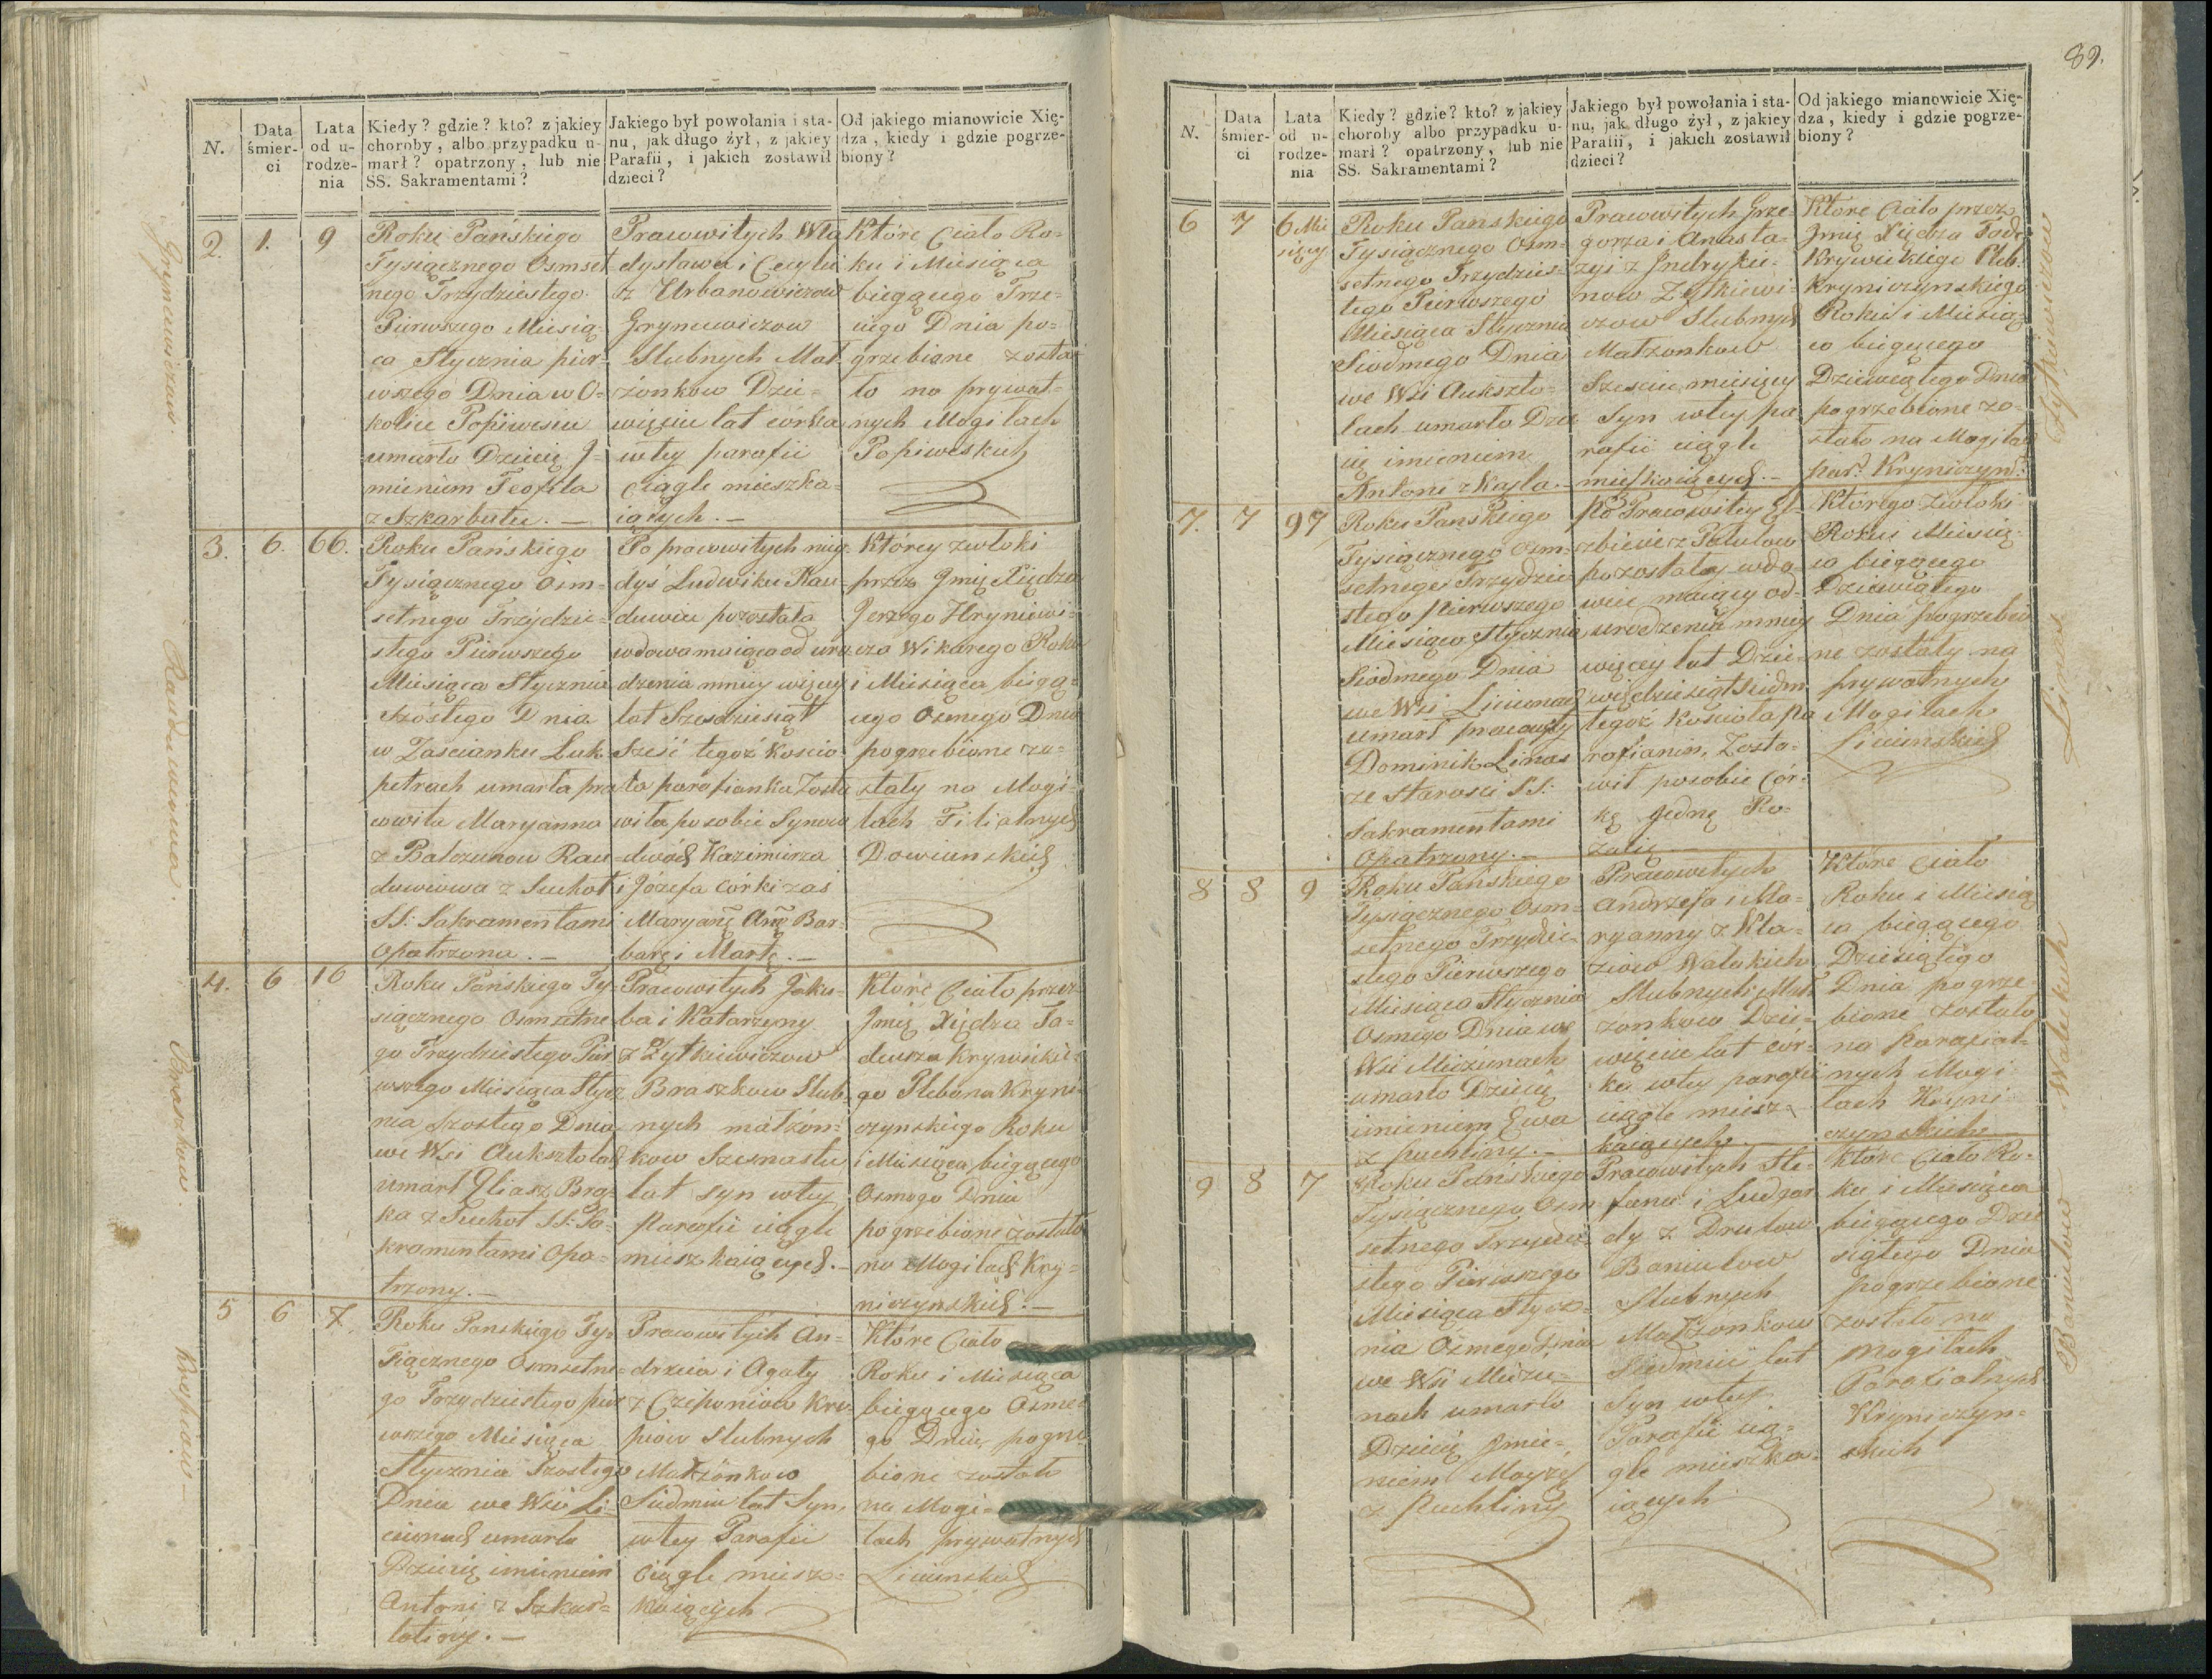 N.
Data śmier-ci
Lata od u-rodze-nia
Kiedy? gdzie? kto? z jakiey
choroby, albo przypadku u-
marł? opatrzony, lub nie
SS. Sakramentami?
Jakiego był powołania i sta-
nu, jak długo żył, z jakiey
Parafii, i jakich zostawił
dzieci?
Od jakiego mianowicie Xię-
dza, kiedy i gdzie pogrze-
biony?
2. 1. 9
Roku Pańskiego
Tysiącznego Osmset
nego Trzydziestego
Pierwszego Miesią-
ca Stycznia pier-
wszego Dnia w O-
kolicu Popiwesiu
umarło Dziecię J-
mieniem Teofila
z Szkarbutu. —
Prawowitych Wła
dysława i Cecylii
z Urbanowiczow
Hryncewiczow
Slubnych Mał
żonkow Dzie-
więciu lat córka
wtey parafii
ciągle mieszka-
iących. —
Które Ciało Ro-
ku i Miesiąca
biegącego Trze-
ciego Dnia po-
grzebione zosta
ło na prywat-
nych Mogiłach
Popiweskich
Hryncewiczow.
3. 6. 66.
Roku Pańskiego
Tysiącznego Osm-
setnego Trzydzie-
stego Pierwszego
Miesiąca Stycznia
Szóstego Dnia
w Zascianku Luk-
petrach umarła pra
wowita Maryanna
z Balczunow Rau-
duwiowa z Suchot
SS: Sakramentami
Opatrzona. —
Po prawowitych nieg
dyś Ludwiku Rau-
duwiu pozostała
wdowa maiąca od uro
dzenia mniey więcey
lat Szesdziesiąt
Sześć tegoż Koscio
ła parafianka Zosta
wiła po sobie Synow
dwóch Kazimierza
i Józefa córki zaś
Maryanę Annę Bar-
barę i Martę. —
Którey zwłoki
przez Jmię Xiędza
Jerzego Hryniewi-
cza Wikarego Roku
i Miesiąca biegą-
cego Osmego Dnia
pogrzebione zo-
stały na Mogi-
łach Filialnych
Dowiunskich
4. 6 16
Roku Pańskiego Ty-
siącznego Osmsetne
go Trzydziestego Pier
wszego Miesiąca Stycz
nia Szostego Dnia
we Wsi Auksztolach
umarł Eliasz Bra-
ka z Suchot SS: Sa-
kramentami Opa-
trzony. —
Prawowitych Jaku-
ba i Katarzyny
z Żytkiewiczow
Braszkow Slub-
nych małżon-
kow Szesnastu
lat syn wtey
Parafii ciągle
mieszkaiących. —
Które Ciało przez
Jmię Xiędza Ta-
deusza Krywickie-
go Plebana Kryni-
czynskiego Roku
i Miesiąca biegącego
Osmego Dnia
pogrzebione zostało
na Mogiłach Kry-
niczynskich. —
Braszkow.
5 6 7.
Roku Pańskiego Ty-
siącznego Osmsetne-
go Trzydziestego pier
wszego Miesiąca
Stycznia Szostego
Dnia we Wsi Li-
ciunach umarło
Dziecię imieniem
Antoni z Szkar-
latiny. —
Prawowitych An-
drzeia i Agaty
z Czeponiow Kre-
piow Slubnych
Małżonkow
Siedmiu lat Syn
wtey Parafii
Ciągle miesz-
kaiących
Które Ciało
Roku i Miesiąca
biegącego Osme-
go Dnia pogrze
bione zostało
na Mogi-
łach prywatnych
Liciunskich
Krepiow —
89.
N.
Data śmier-ci
Lata od u-rodze-nia
Kiedy? gdzie? kto? z jakiey
choroby albo przypadku u-
marł? opatrzony, lub nie
SS. Sakramentami?
Jakiego był powołania i sta-
nu, jak długo żył, z jakiey
Parafii, i jakich zostawił
dzieci?
Od jakiego mianowicie Xię-
dza, kiedy i gdzie pogrze-
biony?
6 7 6 Mie
sięcy
Roku Pańskiego
Tysiącznego Osm-
setnego Trzydzies-
tego Pierwszego
Miesiąca Stycznia
Siodmego Dnia
we Wsi Aukszto-
łach umarło Dzie
cię imieniem
Antoni z Kaszla. —
Prawowitych Grze-
gorza i Anasta-
zyi z Jndryku-
now Żytkiewi-
czow Slubnych
Małzonkow
Szesciu miesięcy
Syn wtey pa
rafii ciągle
mieszkaiących. —
Ktore Ciało przez
Jmię Xiędza Tade
Krywickiego Pleb.
Kryniczynskiego
Roku i Miesią-
ca biegącego
Dziewiątego Dnia
pogrzebione zo-
stało na Mogiłach
par. Kryniczyns.
Żytkiewiczow
7. 7 97
Roku Pańskiego
Tysiącznego Osm-
setnego Trzydzie
stego Pierwszego
Miesiąca Stycznia
Siodmego Dnia
we Wsi Liciunach
umarł prawowity
Dominik Linas
ze starosci SS:
Sakramentami
Opatrzony. —
Po Prawowitey El-
zbiecie z Patulow
pozostały wdo-
wiec maiący od-
urodzenia mniey
więcey lat Dzie-
więdziesiąt siedm
tegoż Kościoła Pa
rafianin, Zosta-
wił po sobie Cór-
kę jednę Ro-
zalię
Którego Zwłoki
Roku i Miesią-
ca biegącego
Dziewiątego
Dnia pogrzebio
ne zostały na
prywatnych
Mogiłach
Liciunskich
Linas
8 8 9
Roku Pańskiego
Tysiącznego Osm-
setnego Trzydzie-
stego Pierwszego
Miesiąca Stycznia
Osmego Dnia we
Wsi Mieżunach
umarło Dziecię
imieniem Ewa
z puchliny. —
Prawowitych
Andrzeja i Ma-
ryanny z Kła-
ziow Walukich
Slubnych Mał
zonkow Dzie-
więciu lat cór-
ka wtey parafii
ciągle miesz-
kaiących. —
Które Ciało
Roku i Miesią
ca biegącego
Dziesiątego
Dnia pogrze
bione zostało
na Parafial-
nych Mogi
łach Kryni
czynskich
Walukich
9 8 7
Roku Pańskiego
Tysiącznego Osm
setnego Trzydzie
stego Pierwszego
Miesiąca Stycz-
nia Osmego Dnia
we Wsi Mieżu-
nach umarło
Dziecię Jmie-
niem Mayżeż
z Puchliny
Prawowitych Ste-
fana i Ludgar
dy z Drutow
Baniulow
Slubnych
Małżonkow
Siedmiu lat
Syn wtey
Parafii cią-
gle mieszka-
iących
Ktore Ciało Ro-
ku i Miesiąca
biegącego Dzie
siątego Dnia
pogrzebione
zostało na
Mogiłach
Parafialnych
Kryniczyn-
skich
Baniulow